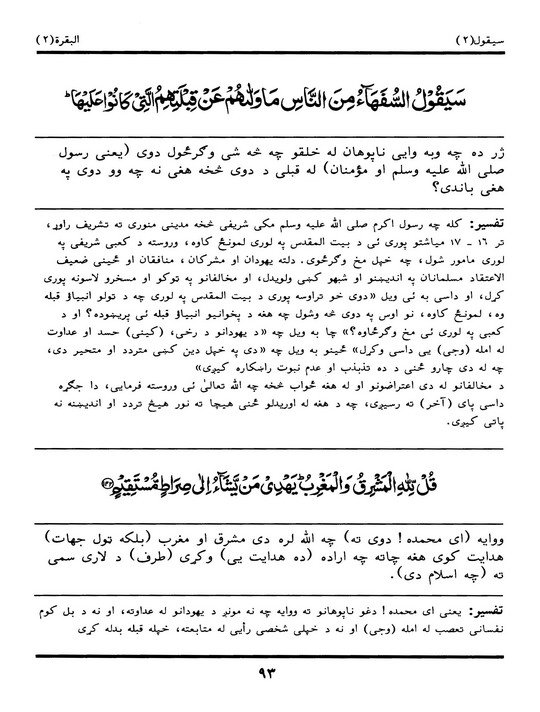 سيقول(۲)
البقرة(۲)
سَيَقُولُ السُّفَهَآءُ مِنَ النَّاسِ مَا وَلّٰىهُمْ عَنْ قِبْلَتِهِمُ الَّتِيْ كَانُوْا عَلَيْهَا ؕ
ژر ده چه وبه وايي ناپوهان له خلقو چه څه شي وګرځول دوى (يعنى رسول
صلى الله عليه وسلم او مؤمنان) له قبلى د دوى څخه هغى نه چه وو دوى په
هغى باندى؟
تفسير: كله چه رسول اكرم صلى الله عليه وسلم مكى شريفى څخه مدينى منورى ته تشريف راوړ،
تر ۱٦ – ۱۷ مياشتو پورى ئى د بيت المقدس په لورى لمونځ كاوه، وروسته د كعبى شريفى په
لورى مامور شول، چه خپل مخ وګرځوى. دلته يهودان او مشركان، منافقان او ځينى ضعيف
الاعتقاد مسلمانان په انديښنو او شبهو كښى ولويدل، او مخالفانو په ټوكو او مسخرو لاسونه پورى
كړل، او داسى به ئى ويل «دوى خو تراوسه پورى د بيت المقدس په لورى چه د ټولو انبياؤ قبله
وه، لمونځ كاوه، نو اوس په دوى څه وشول چه هغه د پخوانيو انبياؤ قبله ئى پريښوده؟ او د
كعبى په لورى ئى مخ وګرځاوه؟» چا به ويل چه «د يهودانو د رخى، (كينى) حسد او عداوت
له امله (وجى) يى داسى وكړل» ځينو به ويل چه «دى په خپل دين كښى متردد او متحير دى،
چه له دى چارو ځنى د ده تذبذب او عدم نبوت راښكاره كيږى»
د مخالفانو له دى اعتراضونو او له هغه ځواب څخه چه الله تعالىٰ ئى وروسته فرمايى، دا جګړه
داسى پاى (آخر) ته رسيږى، چه د هغه له اوريدلو ځنى هيچا ته نور هيڅ تردد او انديښنه نه
پاتى كيږى.
قُلْ لِّلّٰهِ الْمَشْرِقُ وَالْمَغْرِبُ ؕ يَهْدِيْ مَنْ يَّشَآءُ اِلٰى صِرَاطٍ مُّسْتَقِيْمٍ ﴿۱۴۲﴾
ووايه (اى محمده! دوى ته) چه الله لره دى مشرق او مغرب (بلكه ټول جهات)
هدايت كوى هغه چاته چه اراده (ده هدايت يى) وكړى (طرف) د لارى سمى
ته (چه اسلام دى).
تفسير: يعنى اى محمده! دغو ناپوهانو ته ووايه چه نه مونږ د يهودانو له عداوته، او نه د بل كوم
نفسانى تعصب له امله (وجى) او نه د خپلى شخصى رأيى له متابعته، خپله قبله بدله كړى
۹۳